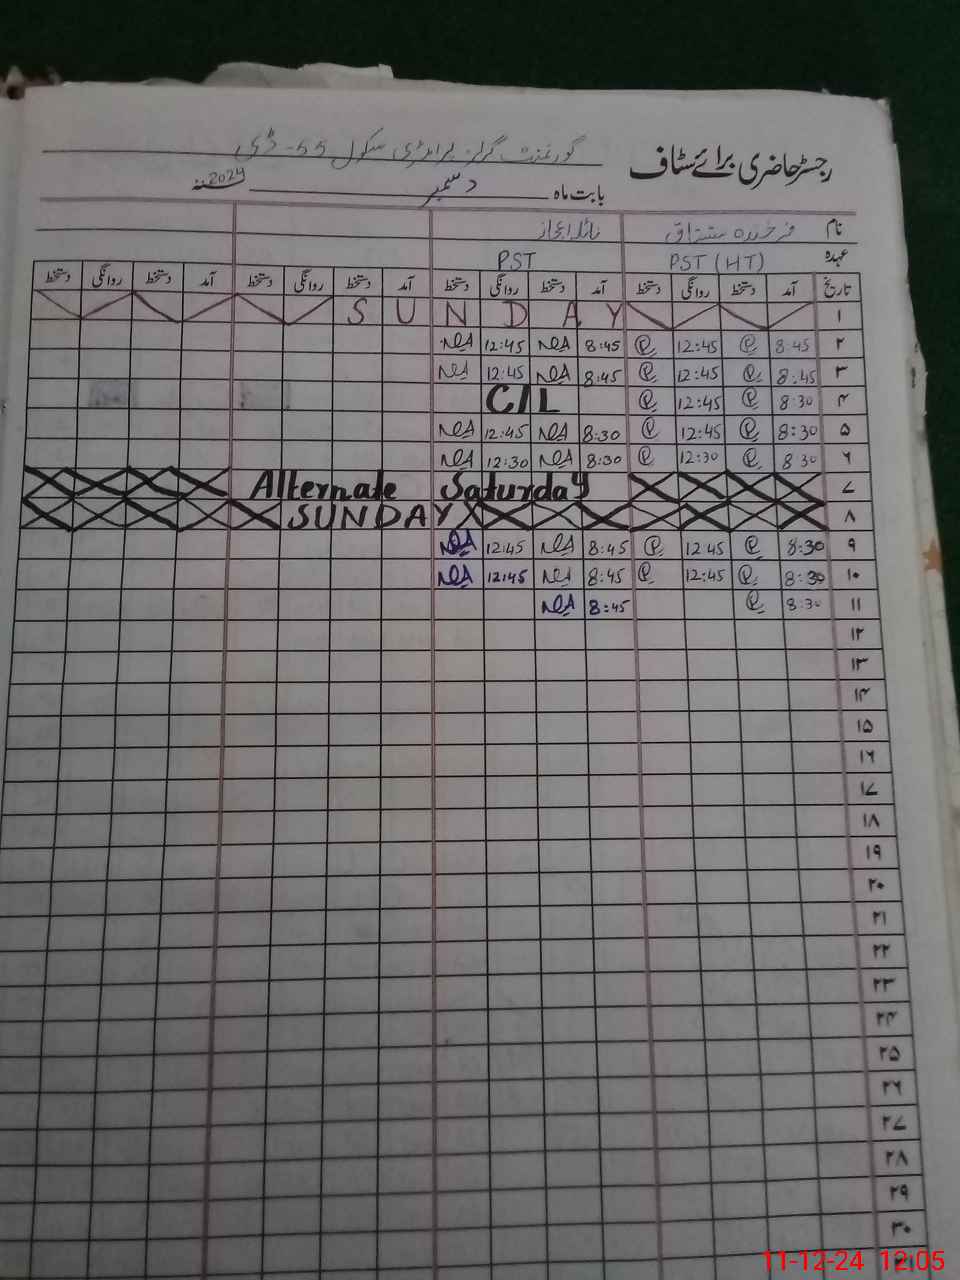 رجسٹر حاضری برائے سٹاف گورنمنٹ گرلز پرائمری سکول 55-ڈی
بابت ماہ دسمبر 2024
نام فرخندہ مشتاق نائلہ اعجاز
عہدہ PST (HT) PST
تاریخ آمد دستخط روانگی دستخط آمد دستخط روانگی دستخط آمد دستخط روانگی دستخط آمد دستخط روانگی دستخط
۱ SUNDAY
۲ 8:45 12:45 8:45 12:45
۳ 8:45 12:45 8:45 12:45
۴ 8:30 12:45 C/L
۵ 8:30 12:45 8:30 12:45
۶ 8 30 12:30 8:30 12:30
۷ Alternate Saturday
۸ SUNDAY
۹ 8:30 12 45 8:45 12:45
۱۰ 8:30 12:45 8:45 12:45
۱۱ 8:30 8:45
۱۲
۱۳
۱۴
۱۵
۱۶
۱۷
۱۸
۱۹
۲۰
۲۱
۲۲
۲۳
۲۴
۲۵
۲۶
۲۷
۲۸
۲۹
۳۰
11-12-24 12:05